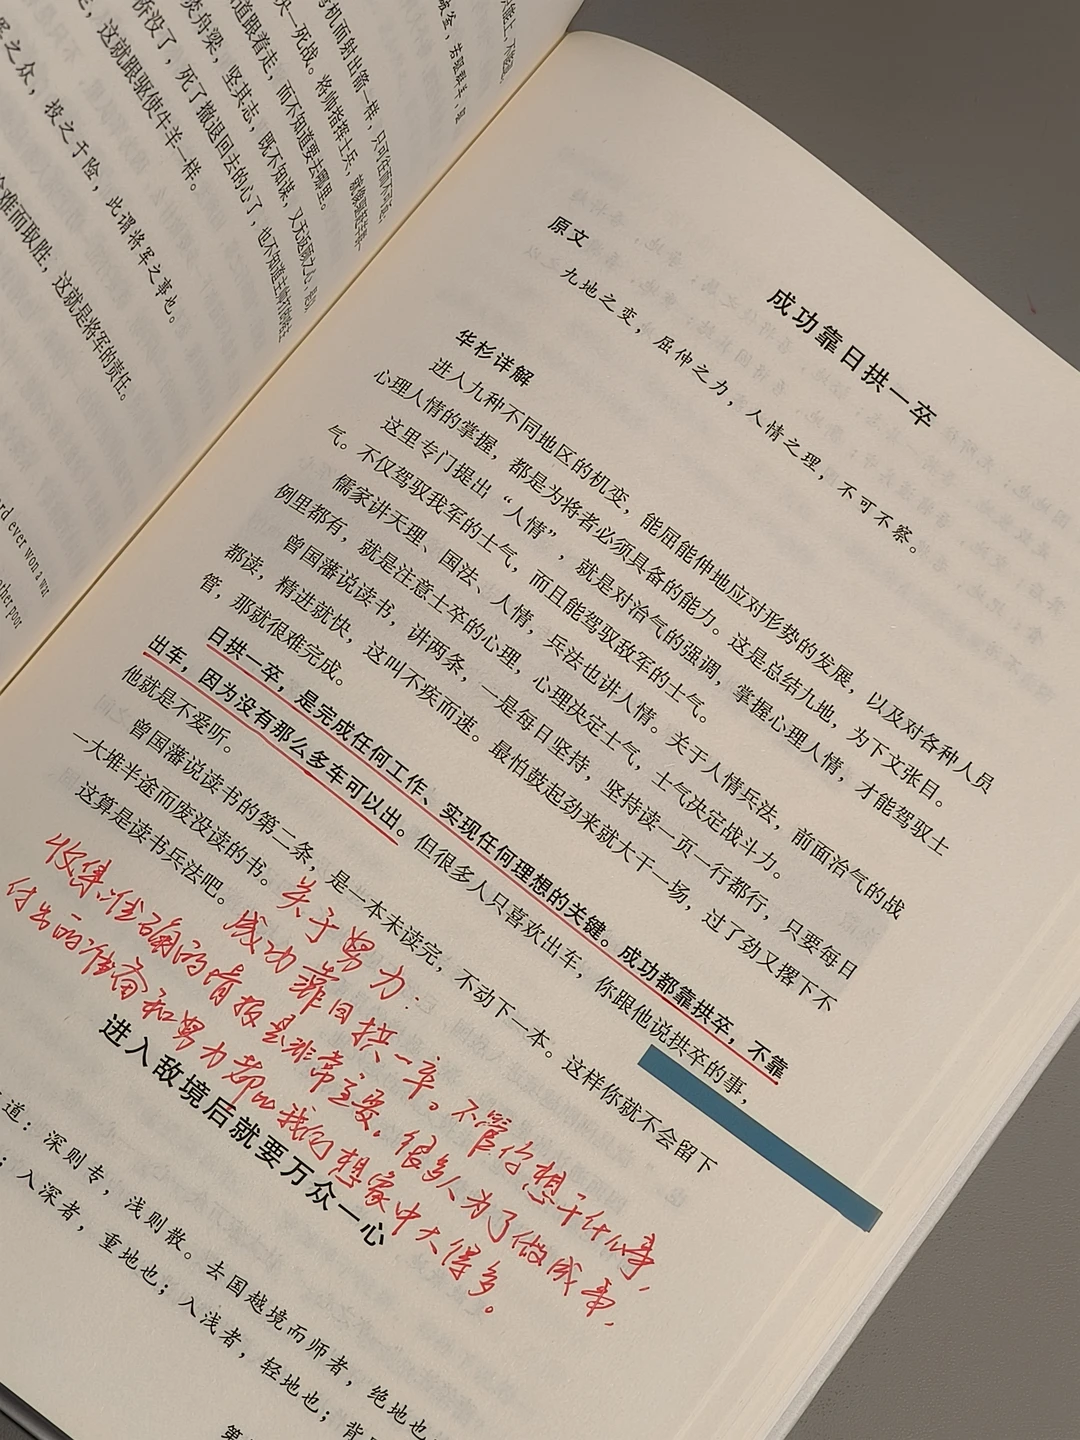 机而射出箭一样，只可往而不可返。
决一死战。将帅指挥士兵，就像驱赶羊群一
道跟着走，而不知道要去哪里。
焚舟梁，坚其志，既不知谋，又无返顾之心，是以
桥没了，死了撤退回去的心了，也不知道主帅的
，这就跟驱使牛羊一样。
军之众，投之于险，此谓将军之事也。
难而取胜，这就是将军的责任。
rd ever won a war
other poor
成功靠日拱一卒
原文
九地之变，屈伸之力，人情之理，不可不察。
华杉详解
进入九种不同地区的机变，能屈能伸地应对形势的发展，以及对各种人员
心理人情的掌握，都是为将者必须具备的能力。这是总结九地，为下文张目。
这里专门提出“人情”，就是对治气的强调，掌握心理人情，才能驾驭士
气。不仅驾驭我军的士气，而且能驾驭敌军的士气。
儒家讲天理、国法、人情，兵法也讲人情。关于人情兵法，前面治气的战
例里都有，就是注意士卒的心理，心理决定士气，士气决定战斗力。
曾国藩说读书，讲两条，一是每日坚持，坚持读一页一行都行，只要每日
都读，精进就快，这叫不疾而速。最怕鼓起劲来就大干一场，过了劲又撂下不
管，那就很难完成。
日拱一卒，是完成任何工作、实现任何理想的关键。成功都靠拱卒，不靠
出车，因为没有那么多车可以出。但很多人只喜欢出车，你跟他说拱卒的事，
他就是不爱听。
曾国藩说读书的第二条，是一本未读完，不动下一本。这样你就不会留下
一大堆半途而废没读的书。
这算是读书兵法吧。
关于努力：
成功靠日拱一卒。不管你想干什么事，
收集准确的情报是非常重要。很多人为了做成事，
付出的准备和努力都比我们想象中大得多。
进入敌境后就要万众一心
道：深则专，浅则散。去国越境而师者，绝地也
；入深者，重地也；入浅者，轻地也；背